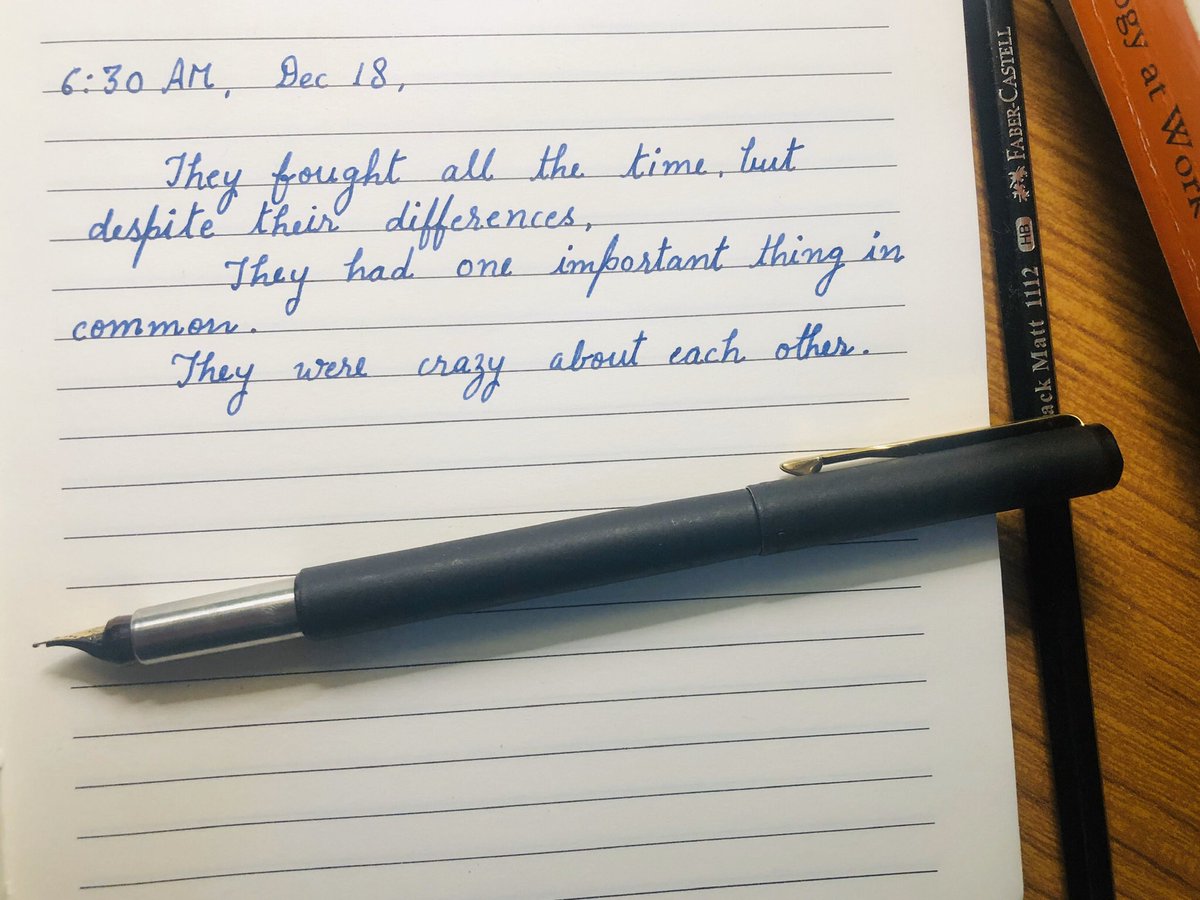 6:30 AM, Dec 18,
They fought all the time, but
despite their differences,
They had one important thing in
common.
They were crazy about each other.
FABER-CASTELL
HB
ack Matt 1112
ogy at Work